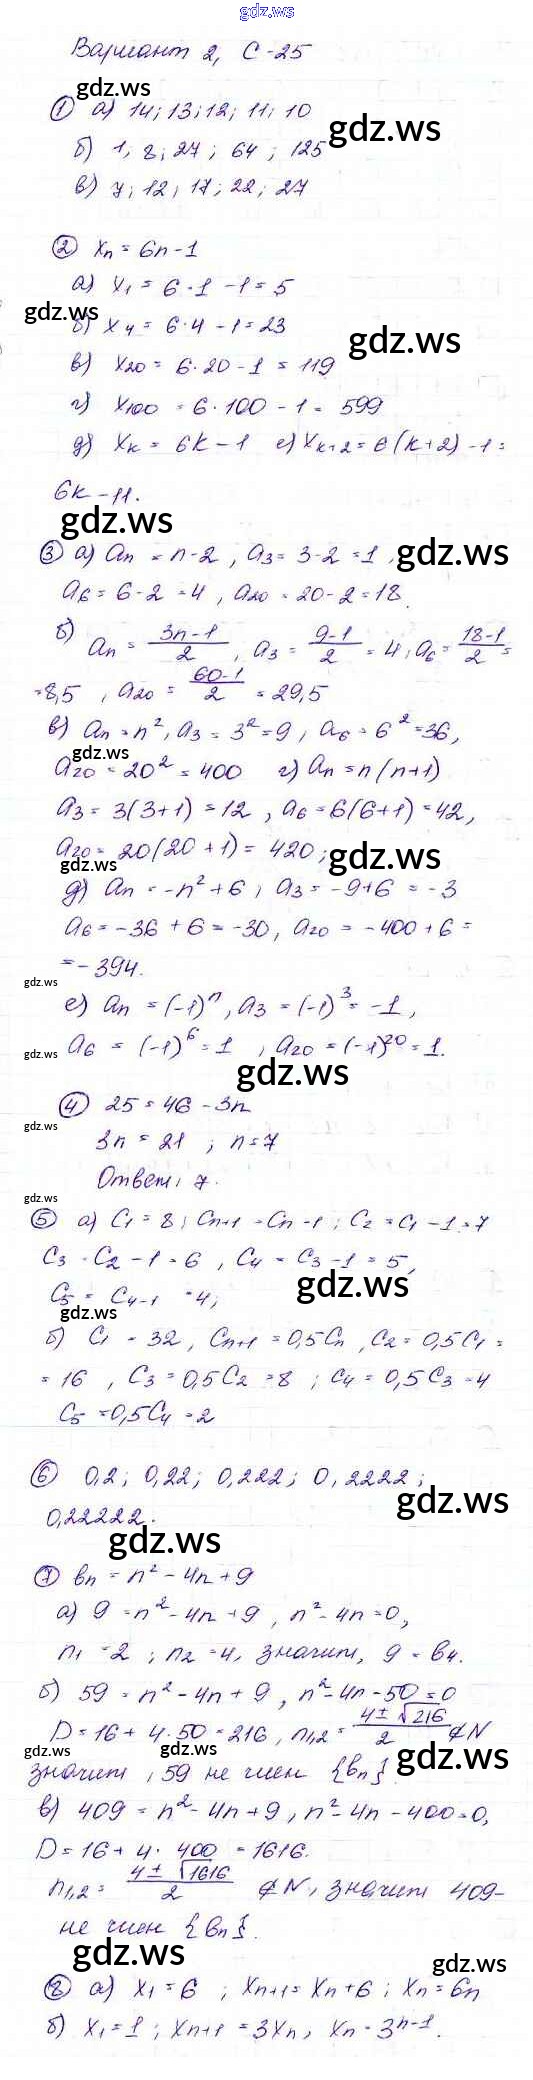 gdz.ws
Вариант 2, С-25
gdz.ws
① а) 14; 13; 12; 11; 10
gdz.ws
б) 1, 8; 27; 64; 125
в) 7; 12; 17; 22; 27
② xₙ = 6n-1
а) x₁ = 6·1 -1 = 5
gdz.ws
б) x₄ = 6·4 -1 = 23
gdz.ws
в) x₂₀ = 6·20 -1 = 119
г) x₁₀₀ = 6·100 - 1 = 599
д) xₖ = 6k-1 е) xₖ₊₂ = 6(k+2) -1 =
6k-11.
gdz.ws
gdz.ws
③ а) aₙ = n-2, a₃ = 3-2 = 1,
a₆ = 6-2 = 4, a₂₀ = 20-2 = 18.
б) aₙ = (3n-1)/2, a₃ = (9-1)/2 = 4; a₆ = (18-1)/2 =
=8,5, a₂₀ = (60-1)/2 = 29,5
в) aₙ = n², a₃ = 3² = 9, a₆ = 6² = 36,
gdz.ws
a₂₀ = 20² = 400 г) aₙ = n(n+1)
a₃ = 3(3+1) = 12, a₆ = 6(6+1) = 42,
a₂₀ = 20(20+1) = 420;
gdz.ws
gdz.ws
д) aₙ = -n²+6, a₃ = -9+6 = -3
a₆ = -36+6 = -30, a₂₀ = -400+6 =
= -394.
gdz.ws
е) aₙ = (-1)ⁿ, a₃ = (-1)³ = -1,
a₆ = (-1)⁶ = 1, a₂₀ = (-1)²⁰ = 1.
gdz.ws
gdz.ws
④ 25 = 46 - 3n
gdz.ws
3n = 21; n = 7
Ответ: 7.
gdz.ws
⑤ а) c₁ = 8; cₙ₊₁ = cₙ - 1; c₂ = c₁ - 1 = 7
c₃ = c₂ - 1 = 6, c₄ = c₃ - 1 = 5,
gdz.ws
c₅ = c₄₋₁ = 4;
gdz.ws
б) c₁ = 32, cₙ₊₁ = 0,5cₙ, c₂ = 0,5c₁ =
= 16, c₃ = 0,5c₂ = 8; c₄ = 0,5c₃ = 4
c₅ = 0,5c₄ = 2
⑥ 0,2; 0,22; 0,222; 0,2222;
gdz.ws
0,22222.
gdz.ws
⑦ bₙ = n² - 4n + 9
а) 9 = n² - 4n + 9, n² - 4n = 0,
n₁ = 2; n₂ = 4, значит, 9 = b₄.
б) 59 = n² - 4n + 9, n² - 4n - 50 = 0
D = 16 + 4·50 = 216, n₁,₂ = (4±√216)/2 ∉ N
gdz.ws
gdz.ws
gdz.ws
значит, 59 не член {bₙ}.
в) 409 = n² - 4n + 9, n² - 4n - 400 = 0,
D = 16 + 4·400 = 1616.
n₁,₂ = (4±√1616)/2 ∉ N, значит 409-
не член {bₙ}.
gdz.ws
gdz.ws
⑧ а) x₁ = 6; xₙ₊₁ = xₙ + 6; xₙ = 6n
б) x₁ = 1; xₙ₊₁ = 3xₙ, xₙ = 3ⁿ⁻¹.
gdz.ws